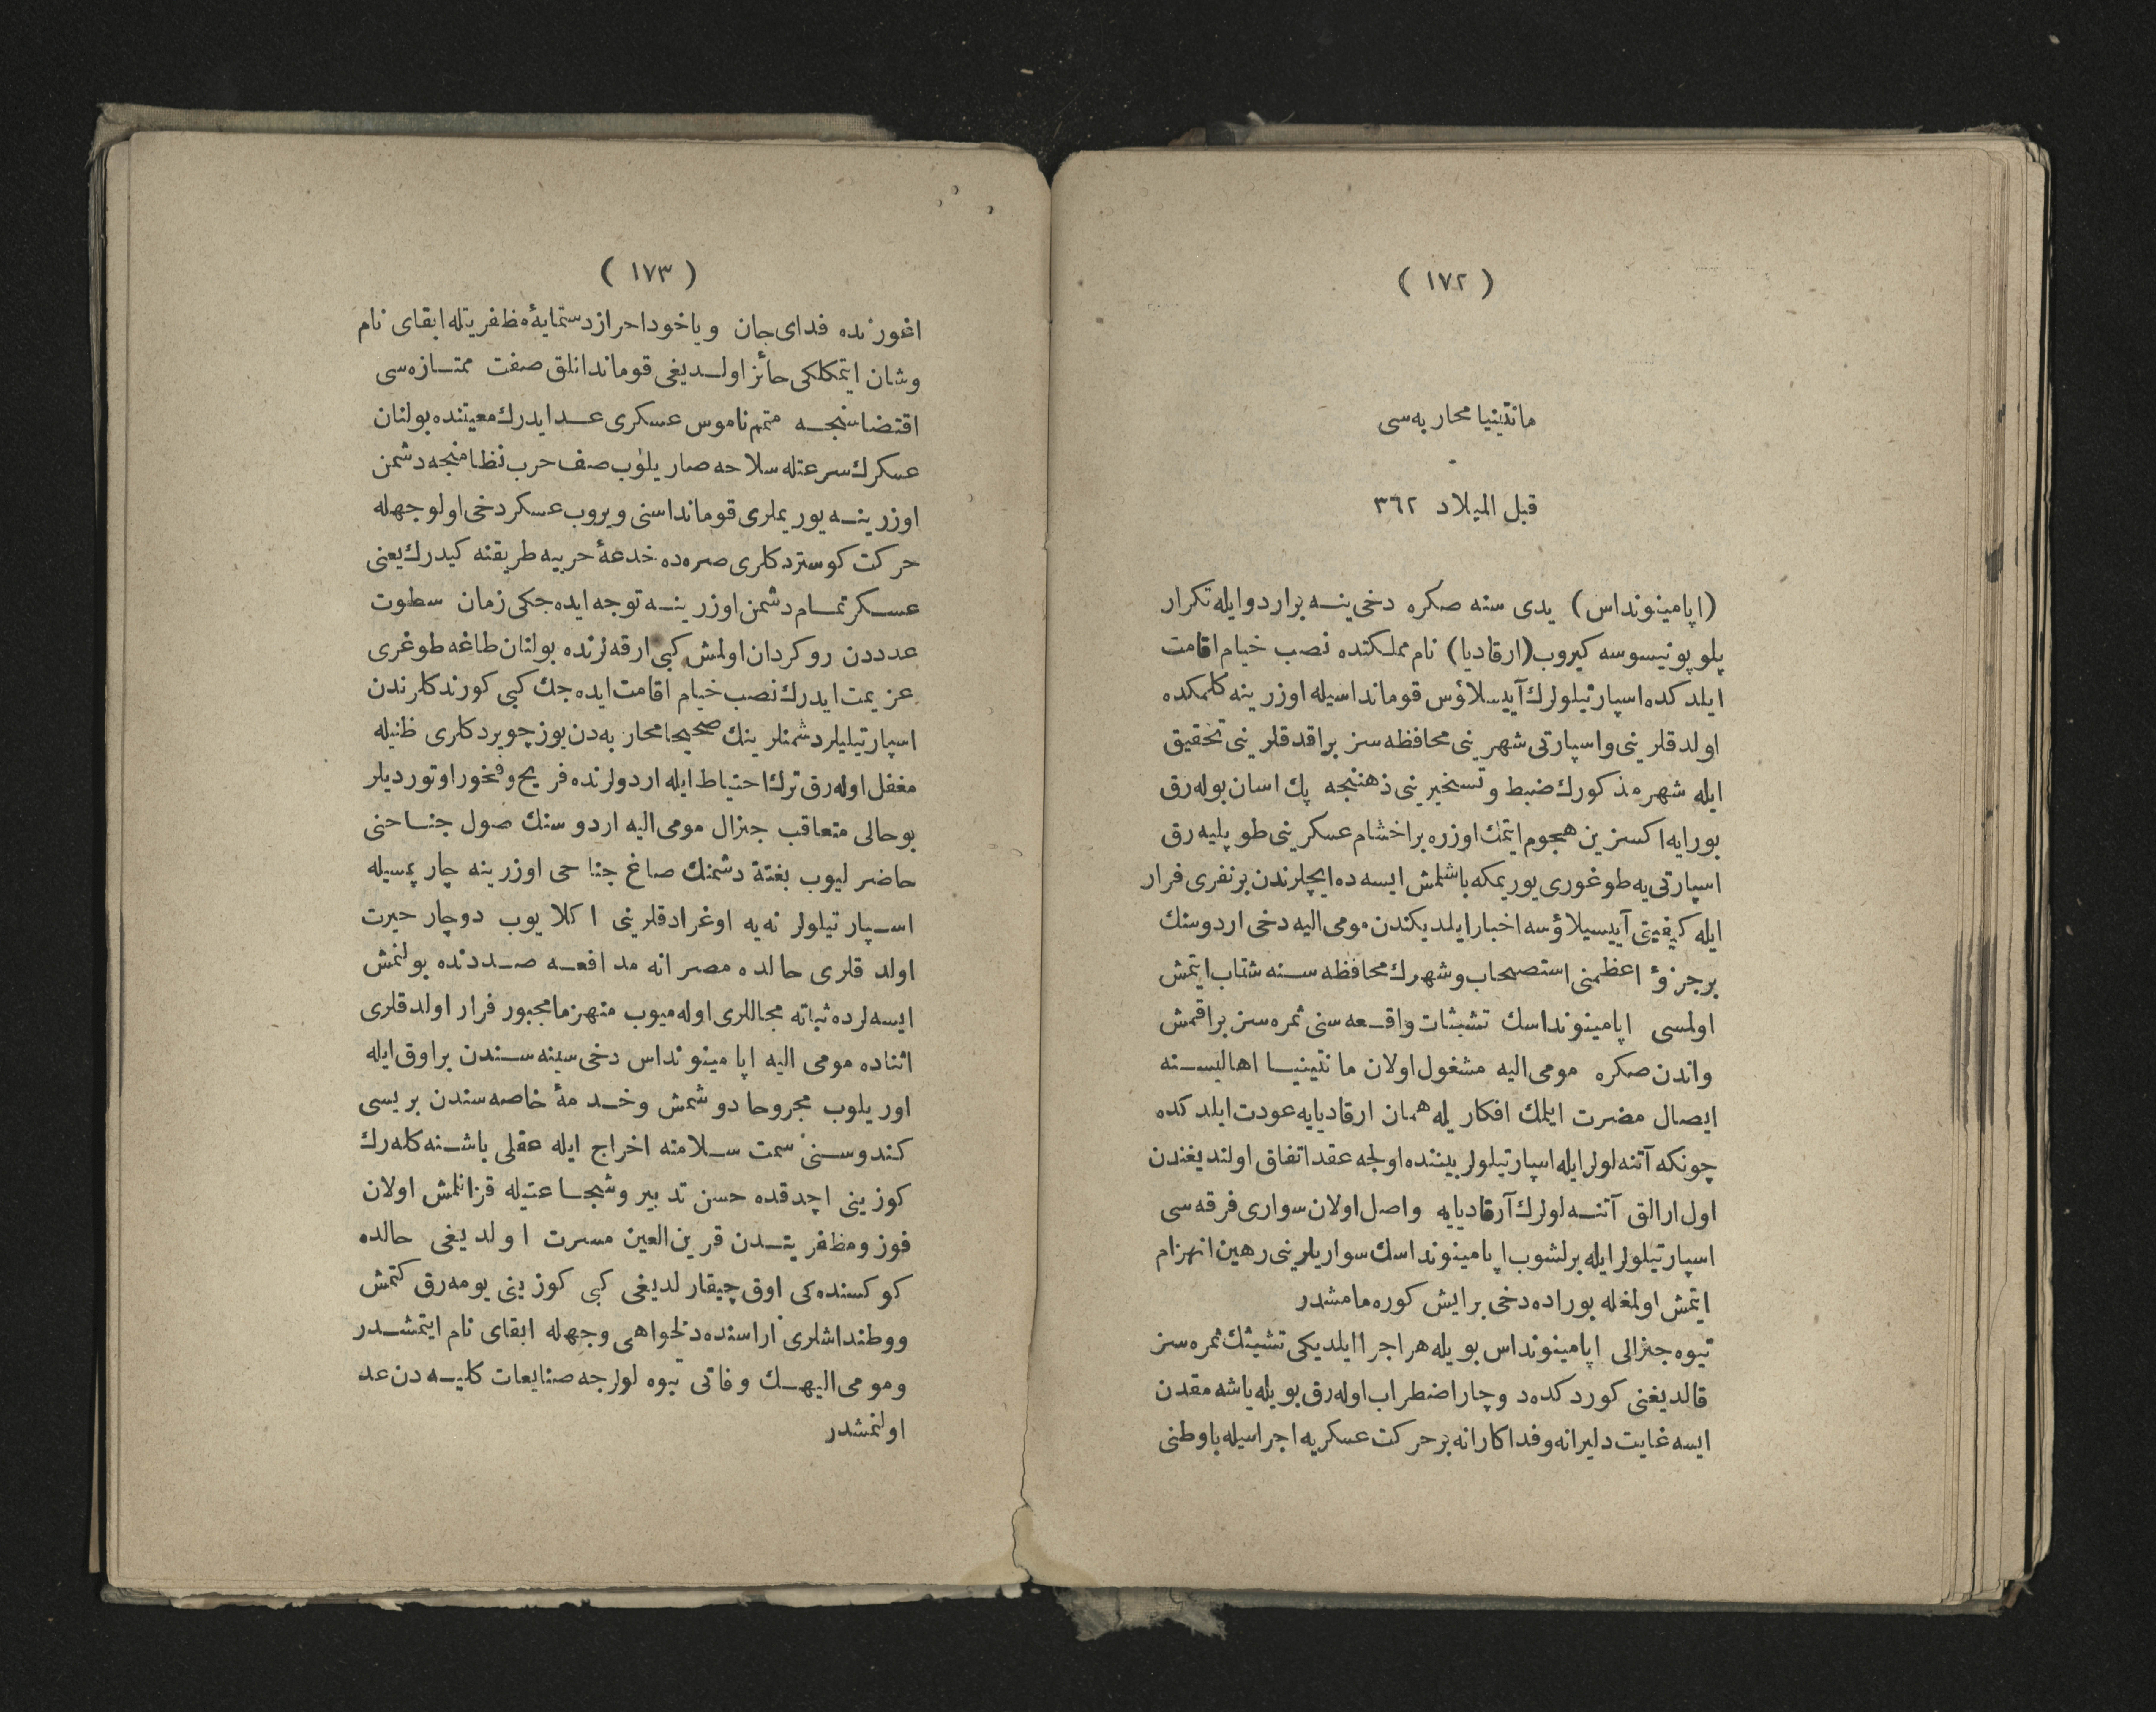 ( ١٧٢ )
مانتينيا محاربه‌سی
قبل الميلاد ٣٦٢
(اپامينونداس) يدی سنه صكره دخی ينه براردوايله تكرار
پلوپونيسوسه كيروب (ارقاديا) نام مملكتده نصب خيام اقامت
ايلدكده اسپارتيلولرك آييسلاؤس قومانداسيله اوزرينه كلمكده
اولدقلرينی واسپارتی شهرينی محافظه سز براقدقلرينی تحقيق
ايله شهر مذكورك ضبط وتسخيرينی ذهننجه پك اسان بوله‌رق
بورايه اكسزين هجوم ايتمك اوزره براخشام عسكرينی طوپليه‌رق
اسپارتی‌يه طوغوری يوريمكه باشلمش ايسه‌ده ايچلرندن برنفری فرار
ايله كيفيتی آييسيلاؤسه اخبارايلديكندن مومی‌اليه دخی اردوسنك
برجزؤ اعظمنی استصحاب وشهرك محافظه‌سنه شتاب ايتمش
اولمسی اپامينونداسك تشبثات واقعه‌سنی ثمره‌سز براقمش
واندن صكره مومی‌اليه مشغول اولان مانتينيا اهاليسنه
ايصال مضرت ايلمك افكاريله همان ارقاديايه عودت ايلدكده
چونكه آتنه‌لولرايله اسپارتيلولر بيننده اولجه عقد اتفاق اولنديغندن
اول‌ارالق آتنه‌لولرك آرقاديايه واصل اولان سواری فرقه‌سی
اسپارتيلولرايله برلشوب اپامينونداسك سواريلرينی رهين انهزام
ايتمش اولمغله بوراده‌دخی برايش كوره‌مامشدر
تيوه جنرالی اپامينونداس بويله هر اجرا ايلديكی تشبثك ثمره‌سز
قالديغنی كوردكده د وچاراضطراب اوله‌رق بويله ياشه‌مقدن
ايسه غايت دليرانه وفداكارانه برحركت عسكريه اجراسيله ياوطنی
( ١٧٣ )
اغورنده فدای جان وياخود احراز دستمايهٔ مظفريتله ابقای نام
وشان ايتمكلكی حائز اولديغی قوماندانلق صفت ممتازه‌سی
اقتضاسنجه متمم ناموس عسكری عد ايدرك معيتنده بولنان
عسكرك سرعتله سلاحه صاريلوب صف حرب نظامنجه دشمن
اوزرينه يوريملری قومانداسنی ويروب عسكردخی اولوجهله
حركت كوستردكلری صره‌ده خدعهٔ حربيه طريقنه كيدرك يعنی
عسكر تمام دشمن اوزرينه توجه ايده‌جكی زمان سطوت
عدددن روكردان اولمش كبی ارقه‌لرنده بولنان طاغه طوغری
عزيمت ايدرك نصب خيام اقامت ايده‌جك كبی كورندكلرندن
اسپارتيليلر دشمنلرينك صحيحا محاربه‌دن يوز چويردكلری ظنيله
مغفل اوله‌رق ترك احتياط ايله اردولرنده فريح وفخور اوتورديلر
بوحالی متعاقب جنرال مومی‌اليه اردوسنك صول جناحنی
حاضرليوب بغتة دشمنك صاغ جناحی اوزرينه چارپمسيله
اسپارتيلولر نه‌يه اوغرادقلرينی اكلايوب دوچار حيرت
اولدقلری حالده مصرانه مدافعه صددنده بولنمش
ايسه‌لرده ثباته مجاللری اوله‌ميوب منهزما مجبور فرار اولدقلری
اثناده مومی‌اليه اپامينونداس دخی سينه‌سندن براوق ايله
اوريلوب مجروحا دوشمش وخدمهٔ خاصه‌سندن بريسی
كندوسنی سمت سلامته اخراج ايله عقلی باشنه كله‌رك
كوزينی اچدقده حسن تدبير وشجاعتيله قزانلمش اولان
فوز ومظفريتدن قرين‌العين مسرت اولديغی حالده
كوكسنده‌كی اوق چيقارلديغی كبی كوزينی يومه‌رق كتمش
ووطنداشلری اراسنده دلخواهی وجهله ابقای نام ايتمشدر
ومومی‌اليهك وفاتی تيوه‌لولرجه ضايعات كليه‌دن عد
اولنمشدر